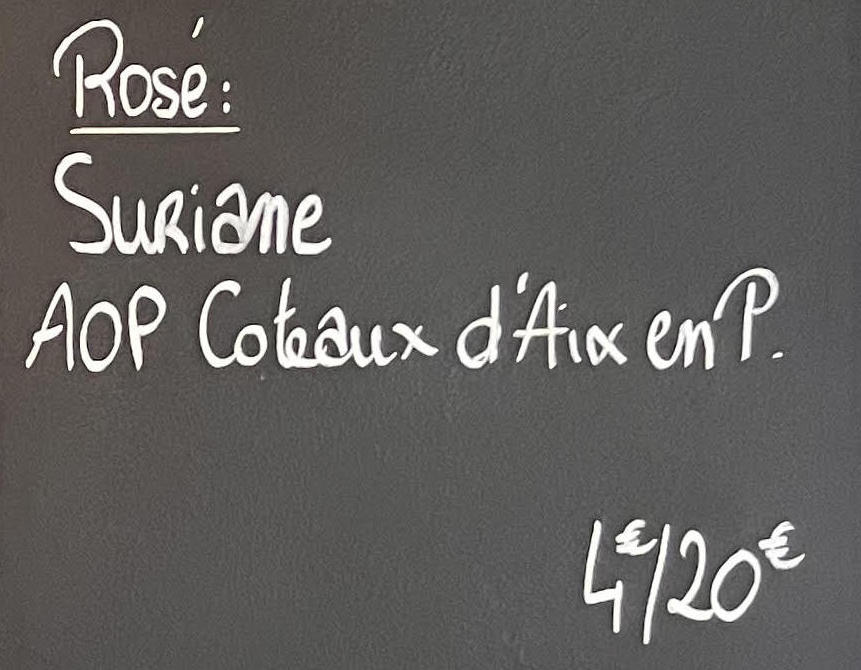 Rosé:
Suriane
AOP Coteaux d'Aix en P.
4€/20€